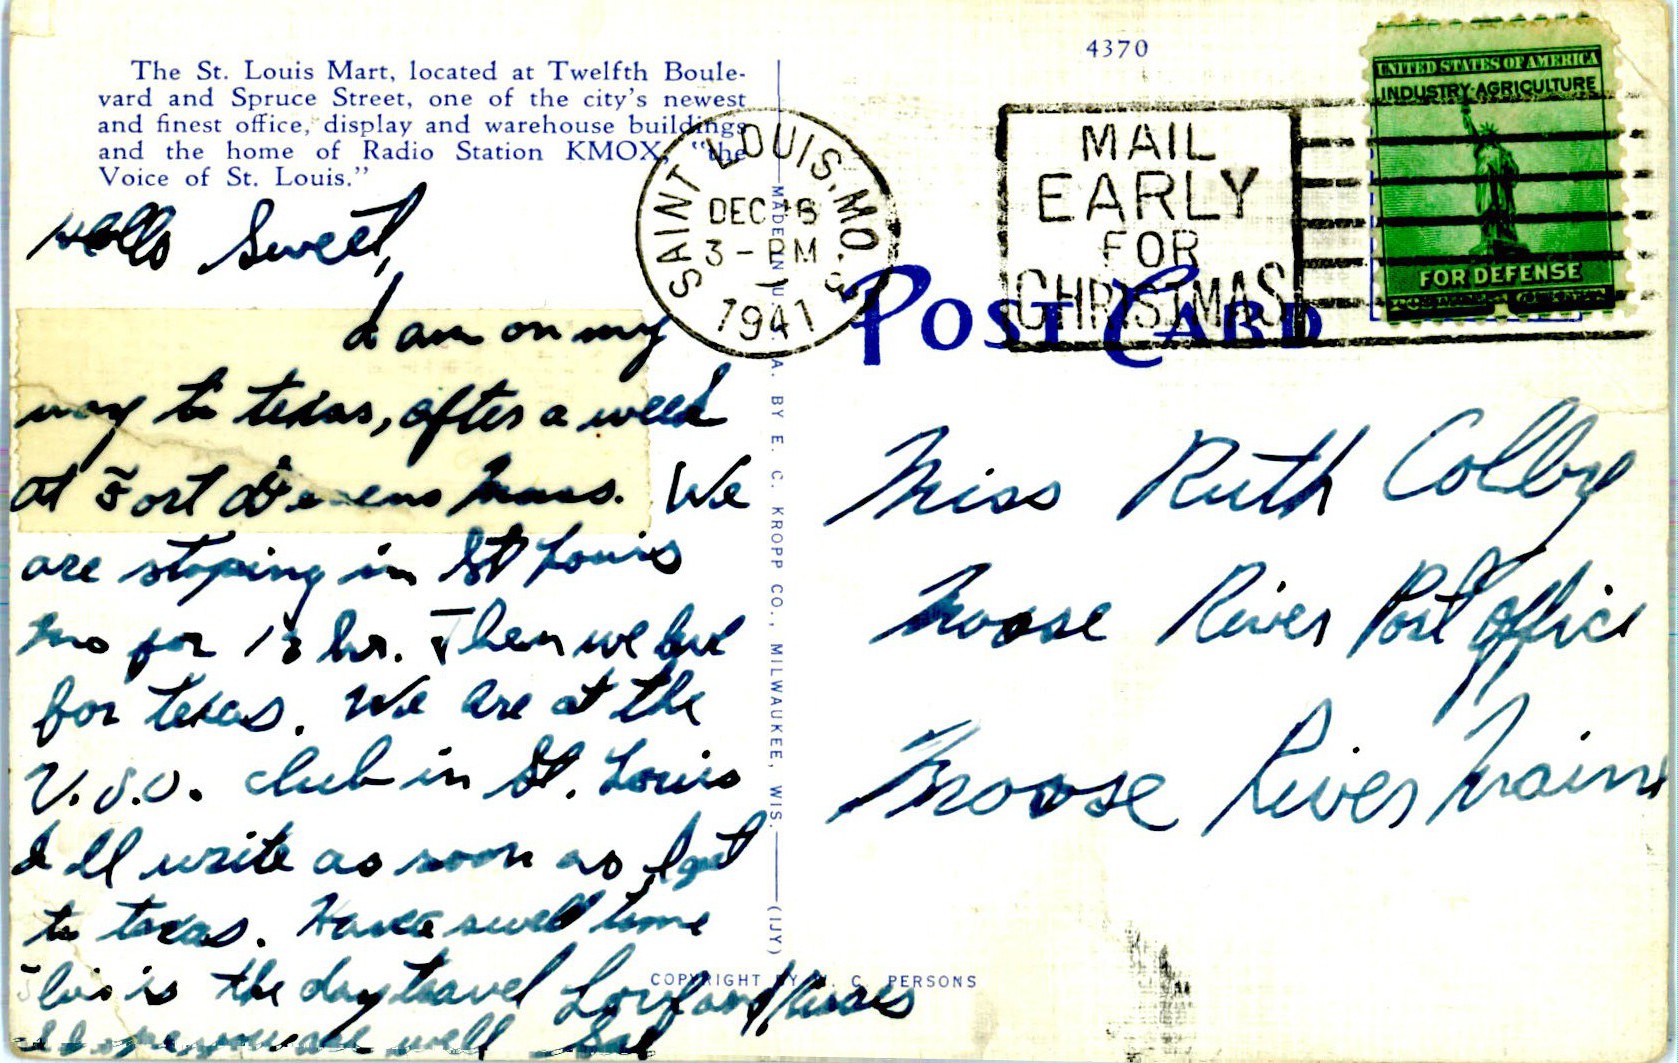 4370
The St. Louis Mart, located at Twelfth Boule-
vard and Spruce Street, one of the city's newest
and finest office, display and warehouse buildings
and the home of Radio Station KMOX, "the
Voice of St. Louis."
SAINT LOUIS, MO.
DEC 16
3-PM
1941
MAIL
EARLY
FOR
CHRISTMAS
UNITED STATES OF AMERICA
INDUSTRY·AGRICULTURE
FOR DEFENSE
POST CARD
Hello Sweet,
I am on my
way to texas, after a week
at Fort Devens Mass. We
are stoping in St Louis
Mo for 13 hr. Then we leve
for texas. We are at the
U.S.O. club in St. Louis
I ll write as soon as I get
to texas. Have a swell time
This is the day travel Love and Kisses
I hope you are well Sal
MADE IN U.S.A. BY E. C. KROPP CO., MILWAUKEE, WIS.
(IJY)
COPYRIGHT BY C. PERSONS
Miss Ruth Colby
Moose River Post Office
Moose River Maine